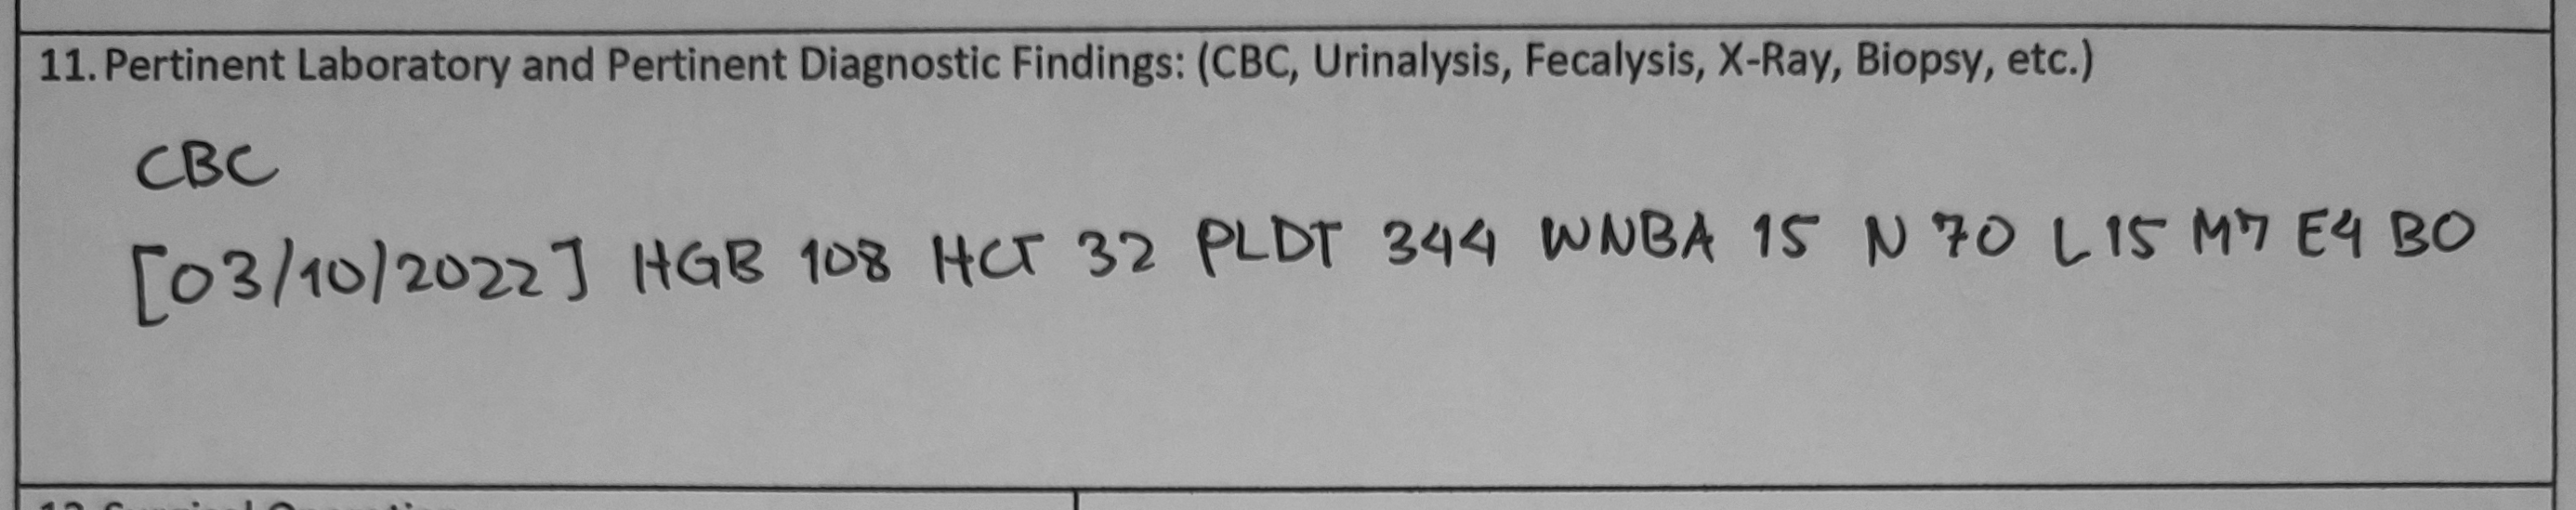 11. Pertinent Laboratory and Pertinent Diagnostic Findings: (CBC, Urinalysis, Fecalysis, X-Ray, Biopsy, etc.)
CBC
[03/10/2022] HGB 108 HCT 32 PLDT 344 WNBA 15 N 70 L 15 M7 E4 B0